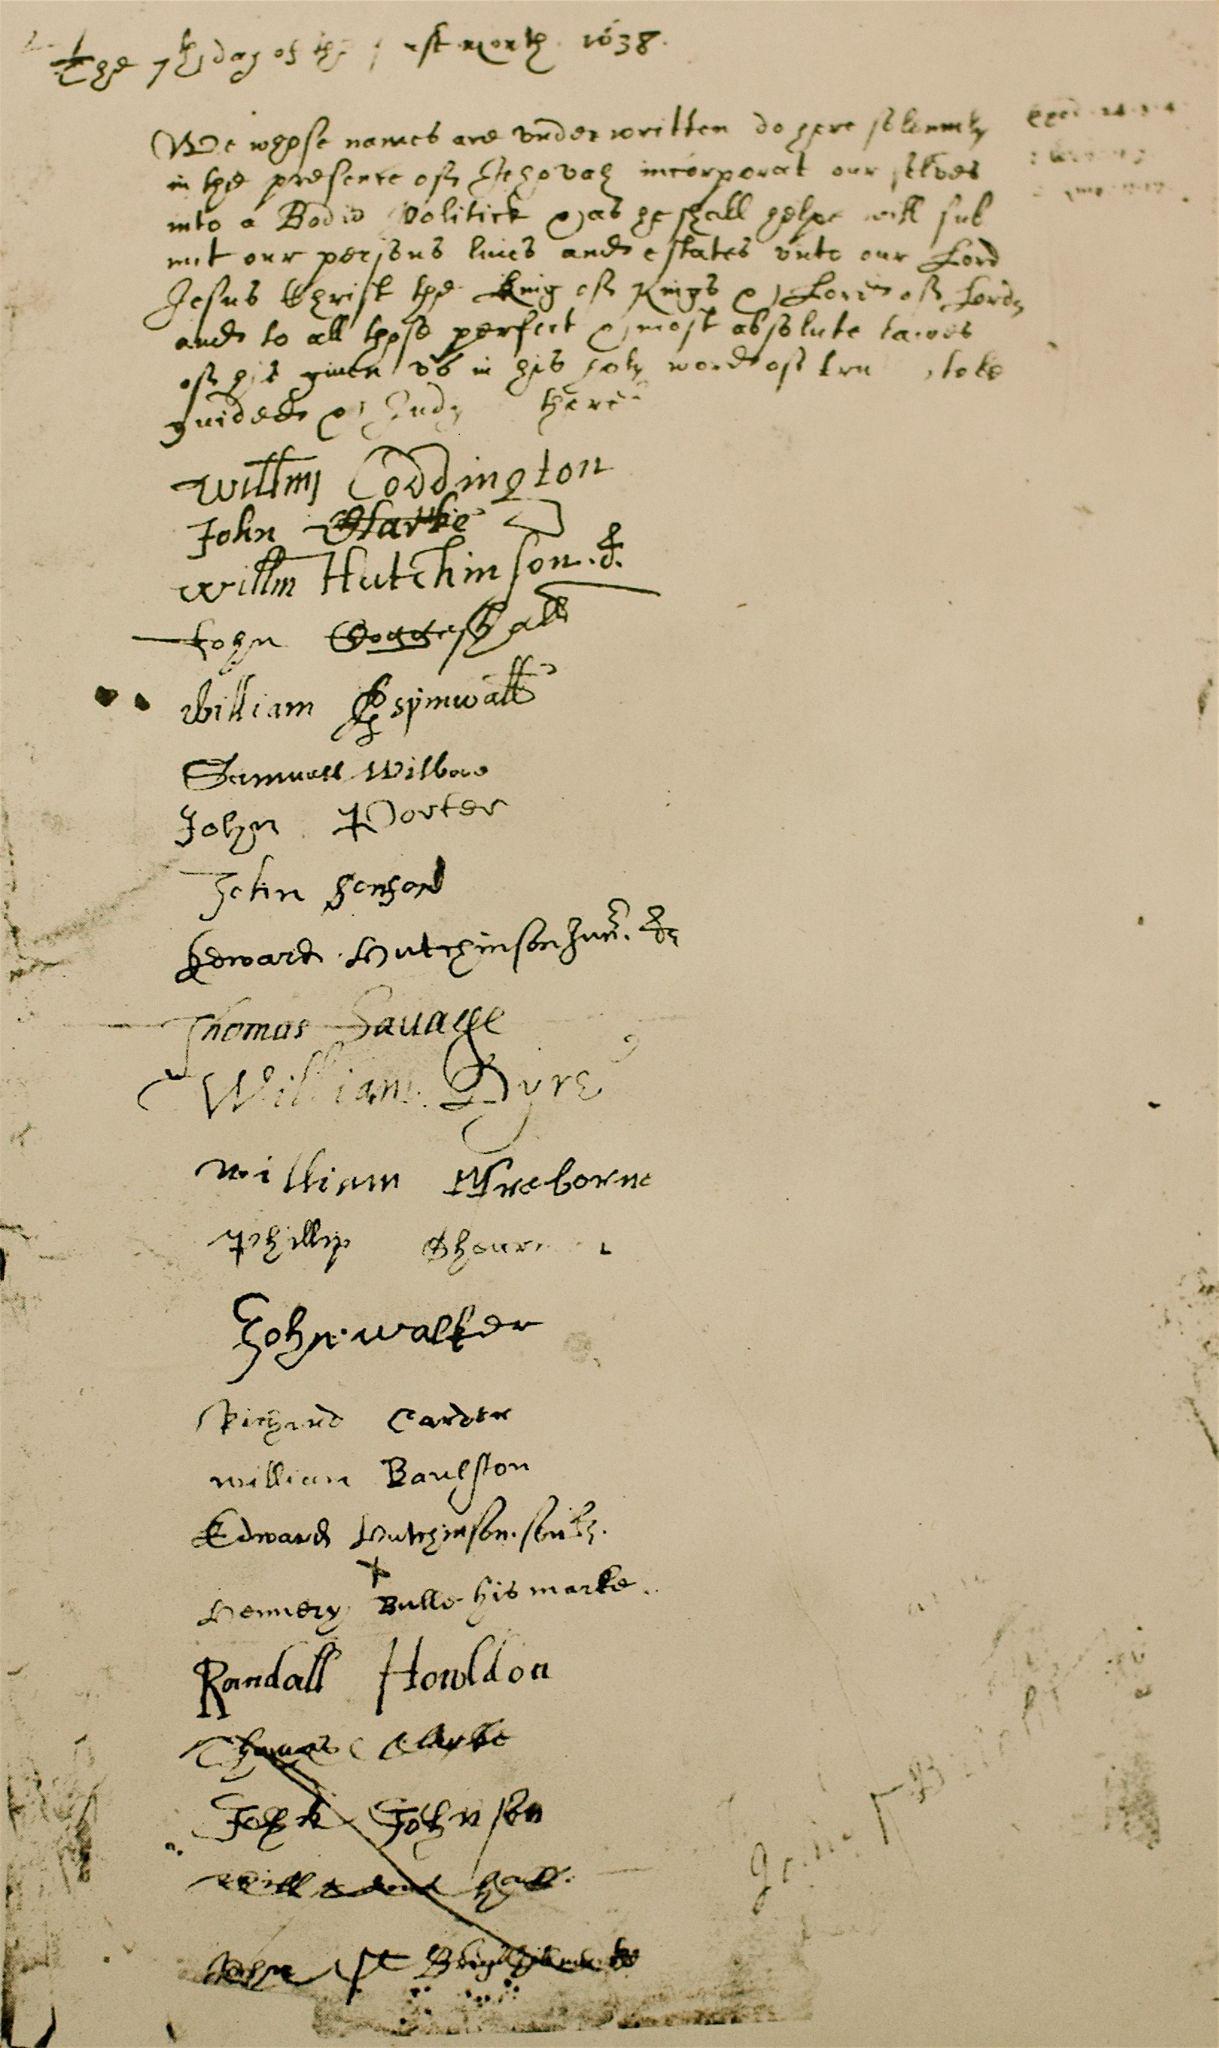 The 7th day of the first month 1638.
We whose names are underwritten do here solemnly
in the presence of Jehovah incorporat our selves
into a Bodie Politick & as he shall helpe will sub
mit our persons lives and estates unto our Lord
Jesus Christ the King of Kings & Lord of Lords
and to all those perfect & most absolute lawes
of his given us in his holy word of truth to be
guided & Judg
Willm Coddington
John Clarke
Willm Hutchinson. &.
John Coggeshall
William Aspinwall
Samuell Wilbore
John Porter
John Sanford
Edward Hutchinson Junr. &
Thomas Savage
William Dyre
William Freborne
Phillip Shear
John walker
Richard Carder
William Baulston
Edward Hutchinson. senr.
x
Hennery Bull his marke.
Randall Howldon
Thomas Clarke
John Johnson
Will hall.
John